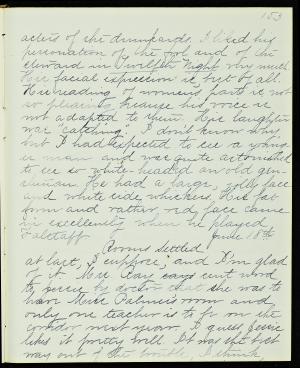 153
actors of the drunkards. I liked his
personation of the fool and of the
steward in Twelfth Night very much
His facial expression is best of all.
His reading of women's parts is not
so pleasing because his voice is
not adapted to them. His laughter
was "catching". I don't know why
but I had expected to see a young
man and was quite astonished
to see so white-headed an old gen-
tleman. He had a large, jolly face
and white side whiskers. His fat
form and rather red face came
in excellently when he played
Falstaff. June 18th
Rooms settled
at last, I suppose, and I'm glad
of it. Miss Ray sent word
to by doctor that she was to
have Miss Palmer's room and
only one teacher is to be on the
corridor next year. I guess Jessie
likes it pretty well. It was the best
way out of the trouble, I think,